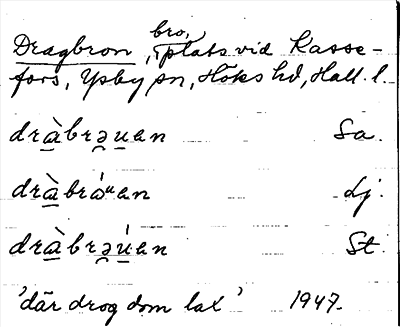 bro,
Dragbron, plats vid Kasse-
fors, Ysby sn, Höks hd, Hall. l.
dràbrəuan Sa.
dràbráuan Lj.
dràbrəúan St.
'där drog dom lax' 1947.